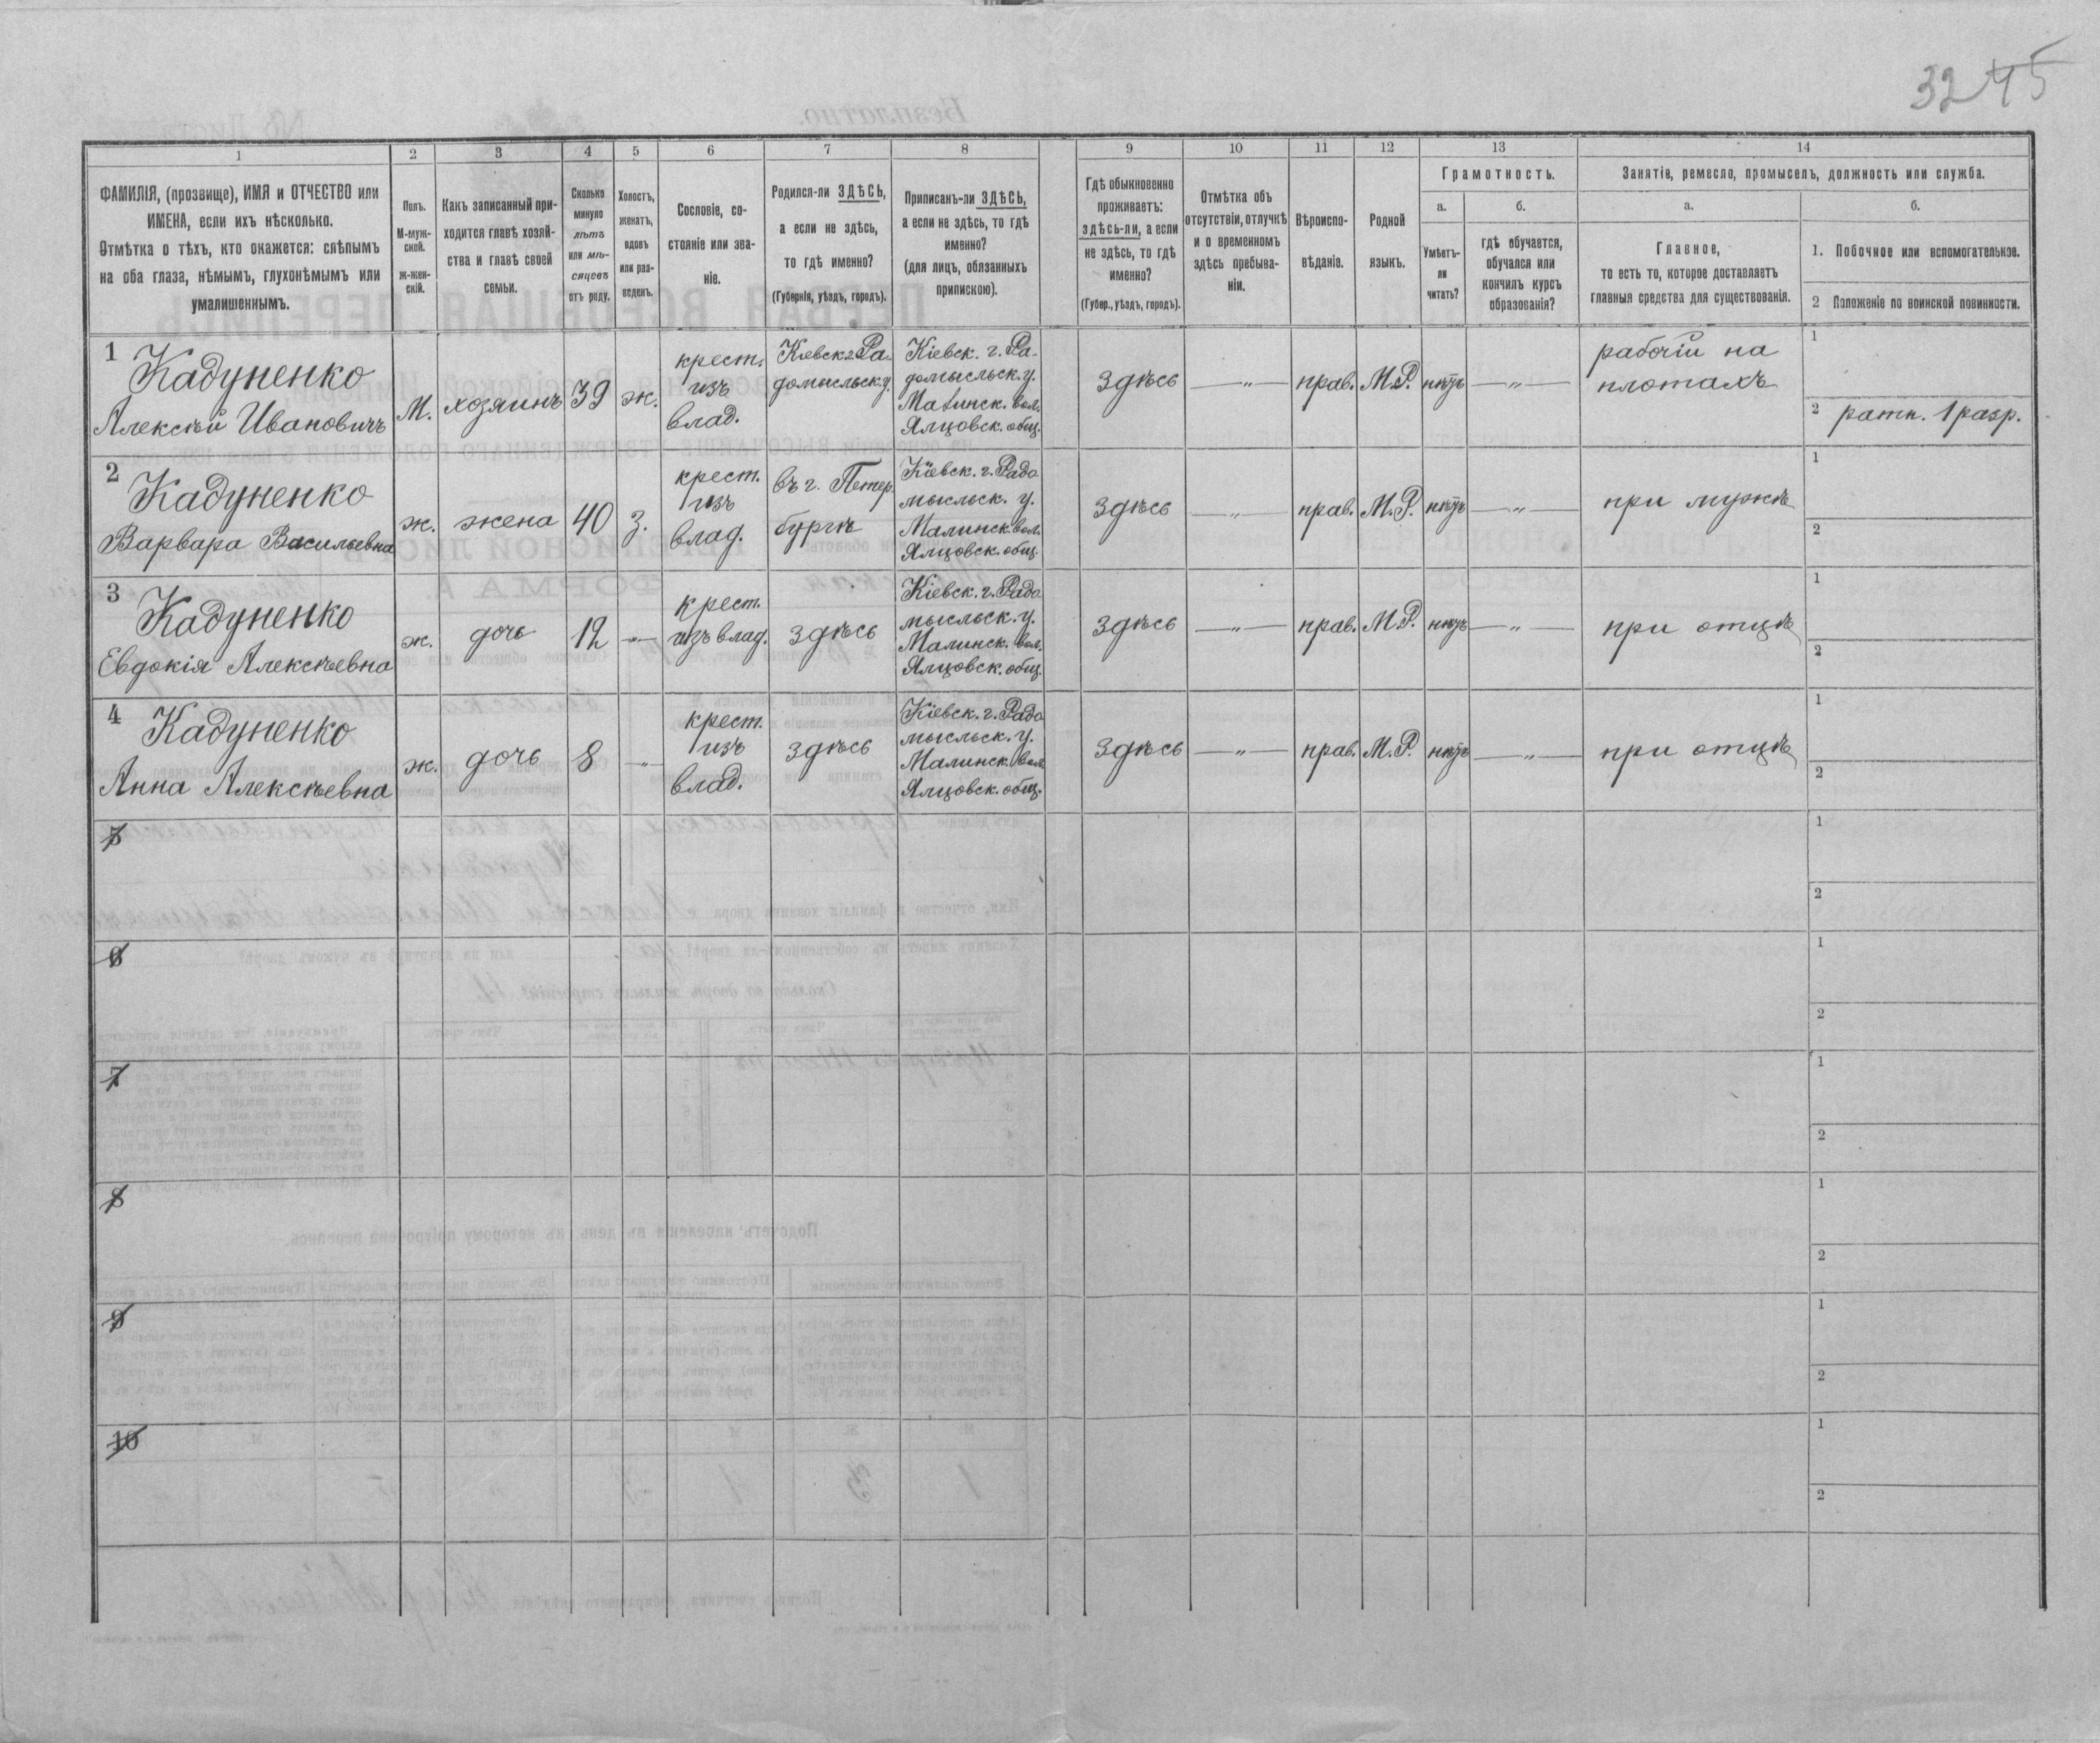 3245
1 2 3 4 5 6 7 8 9 10 11 12 13 14
ФАМИЛІЯ, (прозвище), ИМЯ и ОТЧЕСТВО или
ИМЕНА, если ихъ нѣсколько.
Отмѣтка о тѣхъ, кто окажется: слѣпымъ
на оба глаза, нѣмымъ, глухонѣмымъ или
умалишеннымъ.
Полъ.
М-муж-
ской.
ж-жен-
скій.
Какъ записанный при-
ходится главѣ хозяй-
ства и главѣ своей
семьи.
Сколько
минуло
лѣтъ
или мѣ-
сяцевъ
отъ роду.
Холостъ,
женатъ,
вдовъ
или раз-
веденъ.
Сословіе, со-
стояніе или зва-
ніе.
Родился-ли ЗДѢСЬ,
а если не здѣсь,
то гдѣ именно?
(Губернія, уѣздъ, городъ).
Приписанъ-ли ЗДѢСЬ,
а если не здѣсь, то гдѣ
именно?
(для лицъ, обязанныхъ
припискою).
Гдѣ обыкновенно
проживаетъ:
здѣсь-ли, а если
не здѣсь, то гдѣ
именно?
(Губер., уѣздъ, городъ).
Отмѣтка объ
отсутствіи, отлучкѣ
и о временномъ
здѣсь пребыва-
ніи.
Вѣроиспо-
вѣданіе.
Родной
языкъ.
Грамотность.
а.
Умѣетъ-
ли
читать?
б.
гдѣ обучается,
обучался или
кончилъ курсъ
образованія?
Занятіе, ремесло, промыселъ, должность или служба.
а.
Главное,
то есть то, которое доставляетъ
главныя средства для существованія.
б.
1. Побочное или вспомогательное.
2 Положеніе по воинской повинности.
1
Кадуненко
Алексѣй Ивановичъ
М.
хозяинъ
39
ж.
крест.
изъ
влад.
Кіевск. г. Ра-
домысльск. у.
Кіевск. г. Ра-
домысльск. у.
Малинск. вол.
Ялцовск. общ.
здѣсь
—"—
прав.
М.Р.
нѣтъ
—"—
рабочій на
плотахъ
1
2 ратн. 1 разр.
2
Кадуненко
Варвара Васильевна
ж.
жена
40
з.
крест.
изъ
влад.
въ г. Петер
бургѣ
Кіевск. г. Радо
мысльск. у.
Малинск. вол.
Ялцовск. общ.
здѣсь
—"—
прав.
М.Р.
нѣтъ
—"—
при мужѣ
1
2
3
Кадуненко
Евдокія Алексѣевна
ж.
дочь
12
—"—
крест.
изъ влад.
здѣсь
Кіевск. г. Радо
мысльск. у.
Малинск. вол.
Ялцовск. общ.
здѣсь
—"—
прав.
М.Р.
нѣтъ
—"—
при отцѣ
1
2
4
Кадуненко
Анна Алексѣевна
ж.
дочь
8
—"—
крест.
изъ
влад.
здѣсь
Кіевск. г. Радо
мысльск. у.
Малинск. вол.
Ялцовск. общ.
здѣсь
—"—
прав.
М.Р.
нѣтъ
—"—
при отцѣ
1
2
5
1
2
6
1
2
7
1
2
8
1
2
9
1
2
10
1
2